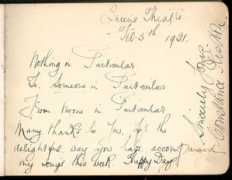 Theatre
Feb 5th 1921.
Nothing in Particular
To Someone in Particular
From no one in Particular
Many thanks to you for the
delightful way you have
my songs this week. Happy Days
Sincerely Yours
Constance